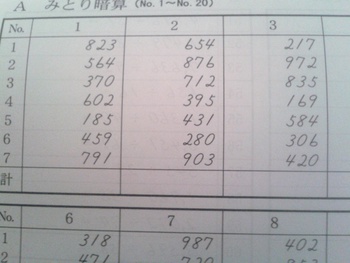 A みとり暗算 (No. 1〜No. 20)
No. 1 2 3
1 823 654 217
2 564 876 972
3 370 712 835
4 602 395 169
5 185 431 584
6 459 280 306
7 791 903 420
計
No. 6 7 8
1 318 987 402
2 471 720